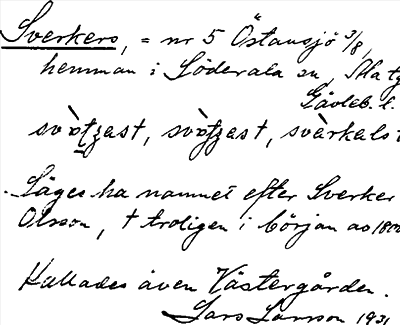 Sverkers, = nr 5 Östansjö 3/8,
hemman i Söderala sn,
Gävleb. l.
Säges ha namnet efter Sverker
Olsson, † troligen i början av 1800
Kallades även Västergården.
Lars Larsson 1931